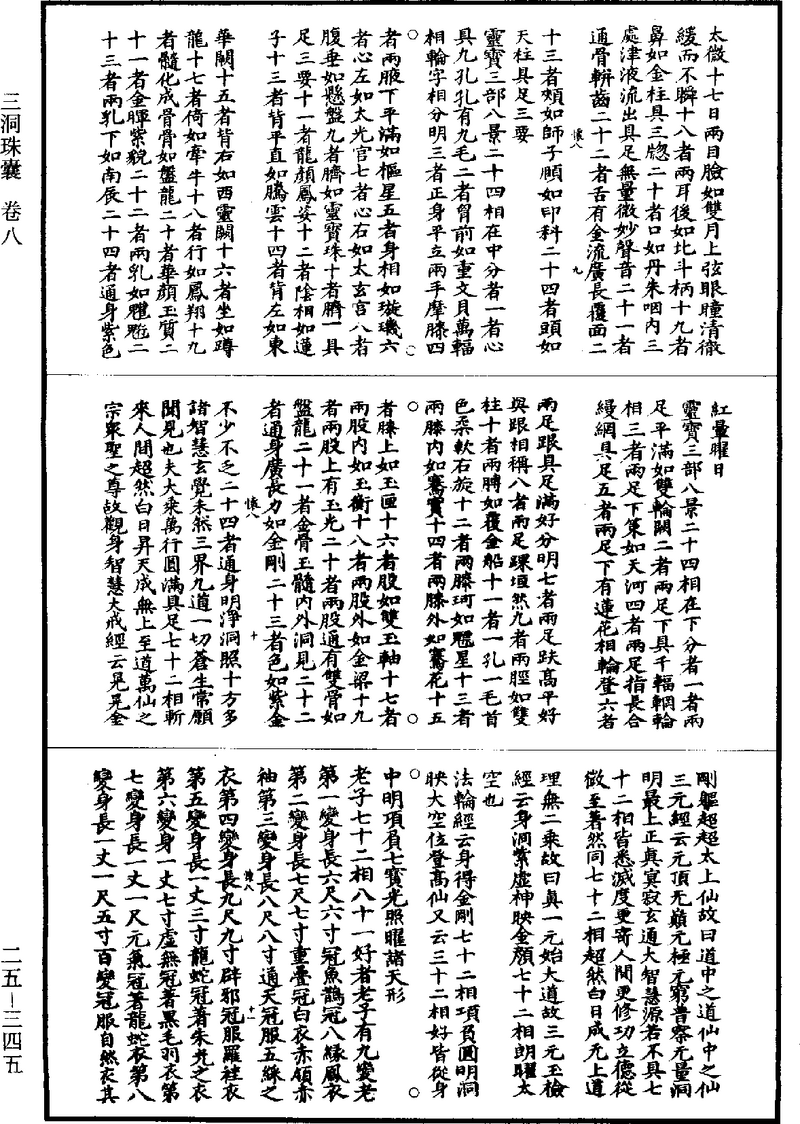 太微十七日兩目臉如雙月上弦眼瞳清徹
緩而不瞬十八者兩耳後如北斗柄十九者
鼻如金柱具三牕二十者口如丹朱咽內三
處津液流出具足無量微妙聲音二十一者
通骨輧齒二十二者舌有金流廣長覆面二
十三者頰如師子頤如印科二十四者頭如
天柱具足三要
靈寶三部八景二十四相在中分者一者心
具九孔孔有九毛二者胷前如重文貝萬輻
相輪字相分明三者正身平立兩手摩膝四
者兩腋下平滿如樞星五者身相如璇璣六
者心左如太光宫七者心右如太玄宫八者
腹垂如懸盤九者臍如靈寶珠十者臍一具
足三要十一者龍顏鳳姿十二者陰相如蓮
子十三者背平直如騰雲十四者背左如東
華闕十五者背右如西靈闕十六者坐如蹲
龍十七者倚如牽牛十八者行如鳳翔十九
者髓化成骨骨如盤龍二十者華顏玉質二
十一者金暉紫貌二十二者兩乳如魓魁二
十三者兩乳下如南辰二十四者通身紫色
紅暈曜日
靈寶三部八景二十四相在下分者一者兩
足平滿如雙輪闕二者兩足下具千輻輞輪
相三者兩足下策如天河四者兩足指長合
縵網具足五者兩足下有蓮花相輪登六者
兩足跟具足滿好分明七者兩足趺高平好
與跟相稱八者兩足踝埴然九者兩脛如雙
柱十者兩膊如覆金船十一者一孔一毛首
色柔軟右旋十二者兩膝珂如魓星十三者
兩膝內如騫實十四者兩膝外如騫花十五
者膝上如玉匣十六者股如雙玉軸十七者
兩股內如玉衡十八者兩股外如金梁十九
者兩股上有玉光二十者兩股通有雙骨如
盤龍二十一者金骨玉髓內外洞見二十二
者通身廣長力如金剛二十三者色如紫金
不少不乏二十四者通身明淨洞照十方多
諸智慧玄覺未然三界九道一切蒼生常願
聞見也夫大乘萬行圓滿具足七十二相斬
來人間超然白日昇天成無上至道萬仙之
宗衆聖之尊故觀身智慧大戒經云晃晃金
剛軀超超太上仙故曰道中之道仙中之仙
三元經云元頂无巔元極元窮普察元量洞
明最上正真寞寂玄通大智慧源若不具七
十二相皆悉滅度更寄人間更修功立德從
微至著然同七十二相超然白日成无上道
理無二乘故曰真一元始大道故三元玉檢
經云身洞紫虛神映金顏七十二相朗曜太
空也
法輪經云身得金剛七十二相項負圓明洞
映大空位登高仙又云三十二相好皆從身
中明項負七寶光照曜諸天形
老子七十二相八十一好者老子有九變老
第一變身長六尺六寸冠魚鵲冠八綵鳳衣
第二變身長七尺七寸重疊冠白衣赤領赤
袖第三變身長八尺八寸通天冠服五綵之
衣第四變身長九尺九寸辟邪冠服羅袿衣
第五變身長一丈三寸龍蛇冠著朱光之衣
第六變身一丈七寸虛無冠著黑毛羽衣第
七變身長一丈一尺元氣冠著龍蛇衣第八
變身長一丈一尺五寸百變冠服自然衣其
懷八
九
懷八
十
懷八
十一
三洞珠囊 卷八
二五-三四五